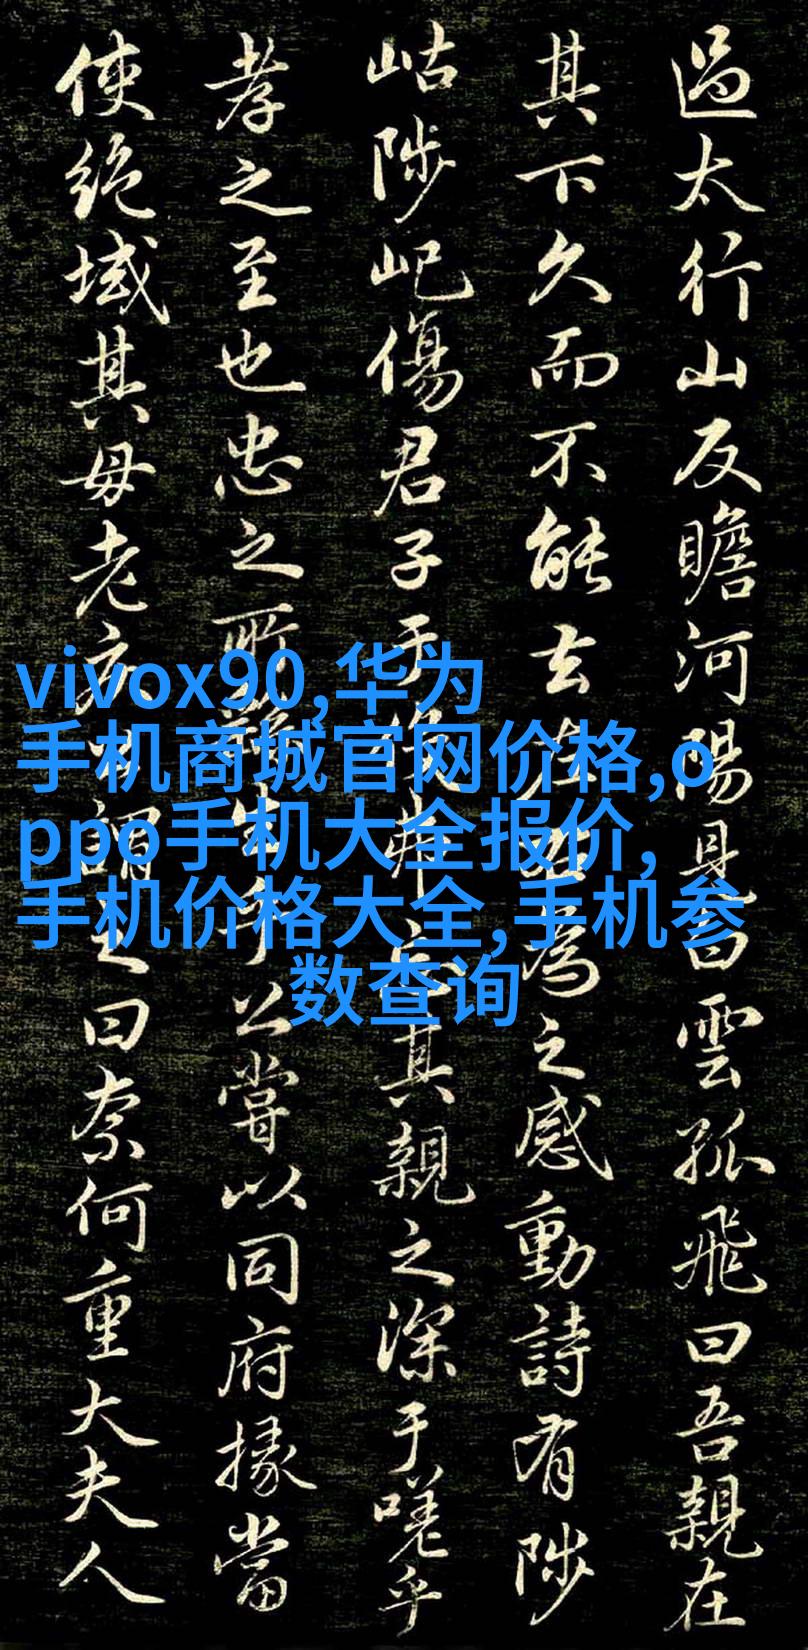 過太行山反瞻河陽見白雲孤飛曰吾親在
其下久而不能去左右為之感動詩有陟
岵陟屺傷君子于役弗忘其親之深于嗟乎
孝之至也忠之所繇生乎公嘗以同府掾當
使絕域其母老疾公謂之曰奈何重大夫人
vivox90,华为
手机商城官网价格,o
ppo手机大全报价,
手机价格大全,手机参
数查询